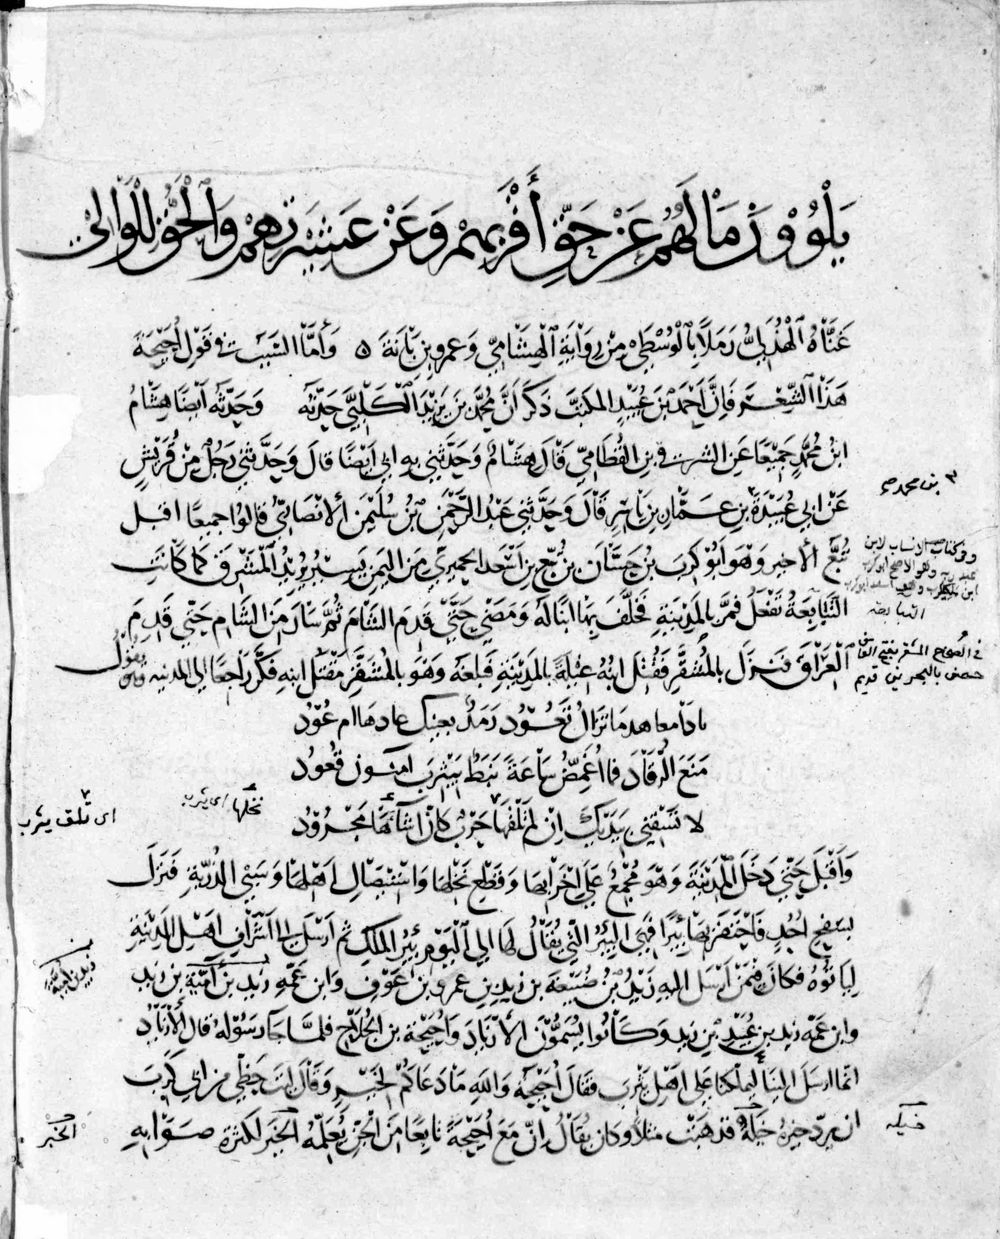 يَلْوُوْنَ مَا لَهُمْ عَنْ حَقِّ أَقْرَبِهِمْ وَعَنْ عَشِيْرَتِهِمْ وَٱلْحَقُّ لِلْوَالِيْ
غَنَّاهُ ٱلْهُذَلِيُّ رَمَلًا بِٱلْوُسْطَى مِنْ رِوَايَةِ ٱلْهِشَامِيِّ وَعَمرِو بنِ بَانَةَ ۵ وَأَمَّا السَّبَبُ في قَوْلِ أُحَيْحَةَ
هَذَا الشِّعْرَ فَإِنَّ أَحْمَدَ بْنَ عُبَيْدٍ المكتب ذَكَرَ أَنَّ مُحَمَّدَ بن يَزِيْدَ ٱلْكَلْبِيَّ حَدَّثَهُ وَحَدَّثَهُ أَيْضًا هِشَامُ
ابْنُ مُحَمَّدٍ جَمِيْعًا عَن الشَّرْقيِّ بنِ القُطَامِيِّ قَالَ هِشَامٌ وَحَدَّثَنِي بِهِ ابي أَيْضًا قال وَحَدَّثَنِي رَجُلٌ مِنْ قُرَيْشٍ
عَنْ ابي عُبَيْدَةَ بْنِ عَمَّارِ بنِ يَاسِرٍ قَالَ وَحَدَّثَنِي عَبْدُ الرَّحْمٰنِ بْنُ سُلَيْمٰنَ ٱلأَنْصَارِيُّ قَالُوا جميعًا اقبل
تُبَّع ٱلأخير وَهْوَ أَبُوْ كَرِبَ بْنُ حَسَّانَ بن تُبَّع بن أَسْعَدَ الحِمْيَرِيّ مِنَ اليَمَنِ يَسِيْرُ يُرِيْدُ ٱلْمَشْرِقَ كَمَا كَانَتِ
التَّبَابِعَةُ تَفْعَلُ فَمَرَّ بِالمَدِيْنَةِ فَخَلَّفَ بِهَا ابْنًا لَهُ وَمَضَى حَتَّى قَدِمَ الشَّامَ ثُمَّ سَارَ مِنَ الشَّامِ حَتَّى قَدِمَ
ٱلْعِرَاقَ فَنَزَلَ بِالْمُشَقَّرِ فَقُتِلَ ابْنُهُ غِيْلَةً بِالمَدِيْنَةِ فَبَلَغَهُ وَهُوَ بِالْمُشَقَّرِ مَقْتَلُ ابنِهِ فَكَرَّ رَاجعًا الى المدينه وَهُوَ يَقُوْلُ
يا ذَا معاهدِ مَا تَزالُ تَعُوْدُ رَمَدٌ بِعَيْنِكَ عادهَا ام عُوَّدُ
مَنَعَ الرُّقَادَ فَمَا أُغَمِّضُ سَاعَةً نَبَطٌ بِيَثْرِبَ آمِنُونَ قُعُودُ
لا تَسْقِنِي بِيَدَيْكَ اِنْ لَمْ تَلْقَهَا حَرْبٌ كَأَنَّ أشَآءَهَا مَجْرُوْدُ
وَأَقْبَلَ حَتَّى دَخَلَ ٱلْمَدِيْنَةَ وَهْوَ مُجْمِعٌ عَلَى اخْرَابِهَا وَقَطْعِ نَخْلِهَا وَاسْتِيْصَالِ أَهْلِهَا وَسَبْي الذُّرِّيَّةِ فَنَزَلَ
بِسَفْحِ أُحُدٍ فَاحْتَفَرَ بِهَا بِئْرًا فَهِيَ البِئرُ الَّتِي يُقَالُ لَهَا الى الْيَوْمِ بِئْرُ المَلِكِ ثُمّ أَرْسَلَ الى أَشْرَافِ اهْلِ المَدِيْنَةِ
لِيَاْتُوْهُ فَكَانَ فِيْمَنْ أَرْسَلَ اليه زَيْدُ بْنُ ضُبَيْعَةَ بن زيدِ بنِ عمرو بْنِ عَوْفٍ وَابن عَمِّهِ زَيدُ بنُ أُمَيَّةَ بن زيد
وابن عَمّه زيدِ بن عُبَيْدِ بْنِ زَيدٍ وَكَانُوا يُسَمَّوْنَ ٱلأَزْيَادَ وَأُحَيْحَةُ بن الجُلاَحِ فلمَّا جَاءَ رَسُوْلُهُ قال ٱلأَزْيَادُ
انَّما ارسَلَ الينَا لِيُملّكنَا على اهْلِ يَثْرِبَ فقَالَ أُحَيْحَةُ وَاللهِ مَا دَعَاكُمْ لِخَيْرٍ وَقَالَ لَيْتَ حَظِّي من ابي كَرِبَ
ان يردّ خيره خبلَهْ فذهَبَتْ مثلاً وكان يُقَالُ إِنَّ مَعَ أُحَيْحَةَ تَابِعًا مِنَ الجِنِّ يُعَلِّمُهُ الخَبَرَ لكَثْرَةِ صَوَابِهِ
بن محمد صح
وفي كتاب الانساب لابن
في الصحاح المشقر بفتح القاف
حصن بالبحرين قديم
نخلها اى يثرب
اى تلق يثرب
زيد بن أميّة
الخبر